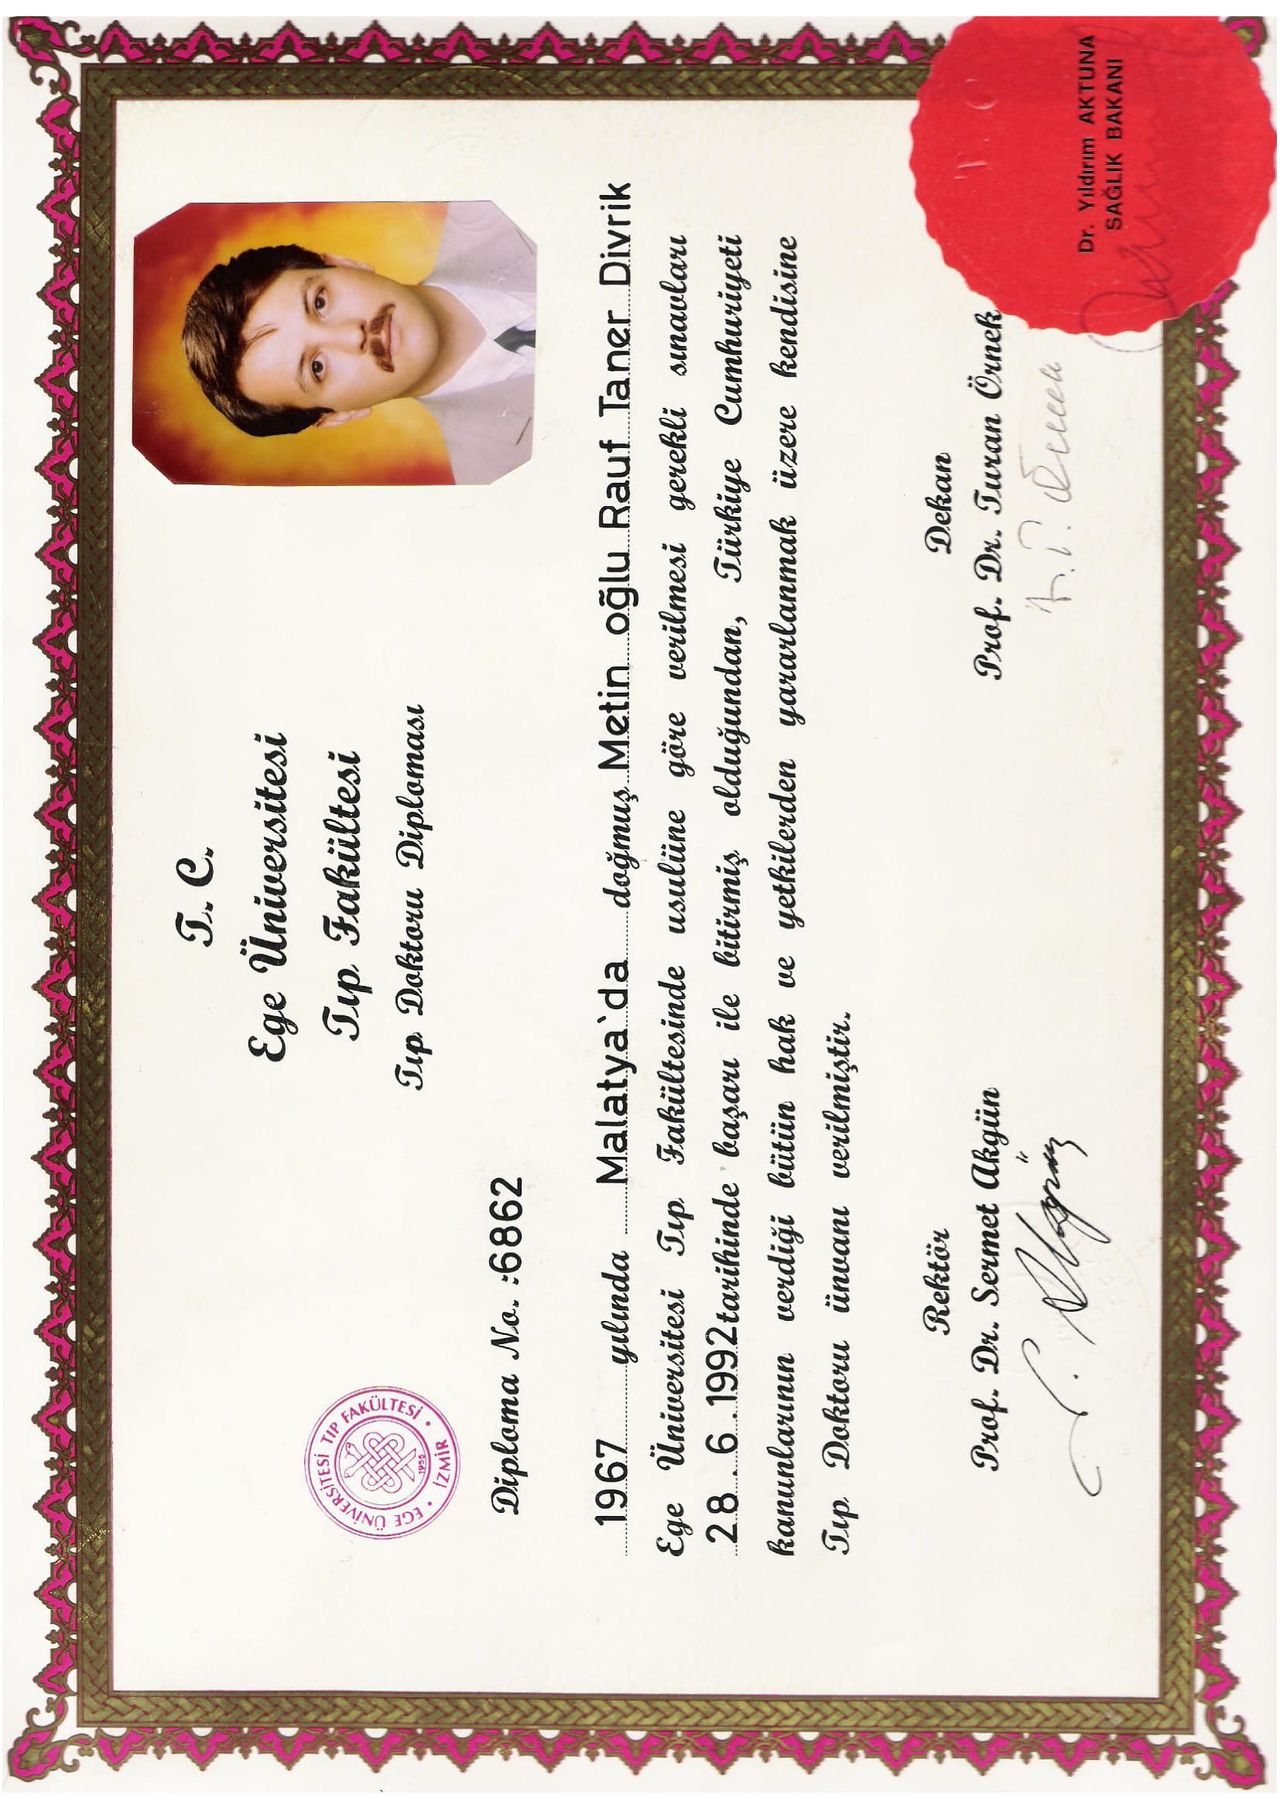 T. C.
Ege Üniversitesi
Tıp Fakültesi
Tıp Doktoru Diploması
EGE ÜNİVERSİTESİ TIP FAKÜLTESİ • İZMİR •
1955
Diploma No. :6862
1967 yılında Malatya'da doğmuş Metin oğlu Rauf Taner Divrik
Ege Üniversitesi Tıp Fakültesinde usulüne göre verilmesi gerekli sınavları
28.6.1992 tarihinde başarı ile bitirmiş olduğundan, Türkiye Cumhuriyeti
kanunlarının verdiği bütün hak ve yetkilerden yararlanmak üzere kendisine
Tıp Doktoru ünvanı verilmiştir.
Rektör
Prof. Dr. Sermet Akgün
Dekan
Prof. Dr. Turan Örnek
T. C.
Dr. Yıldırım AKTUNA
SAĞLIK BAKANI